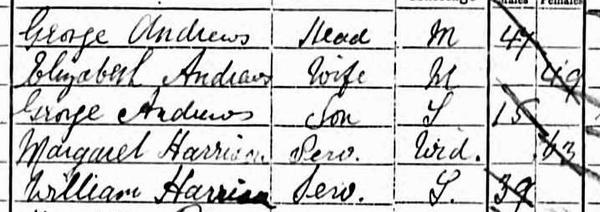 Males Females
George Andrews Head M 47
Elizabeth Andrews Wife M 49
George Andrews Son S 15
Margaret Harrison Serv. Wid. 63
William Harrison Serv. S. 39